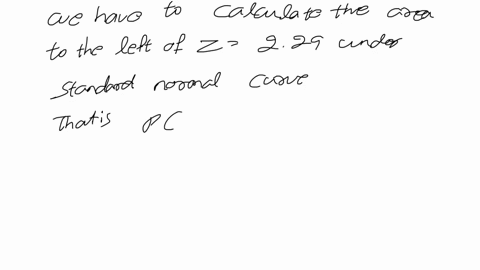 we have to calculate the area
to the left of Z= 2.29 under
Standard normal curve
That is P(